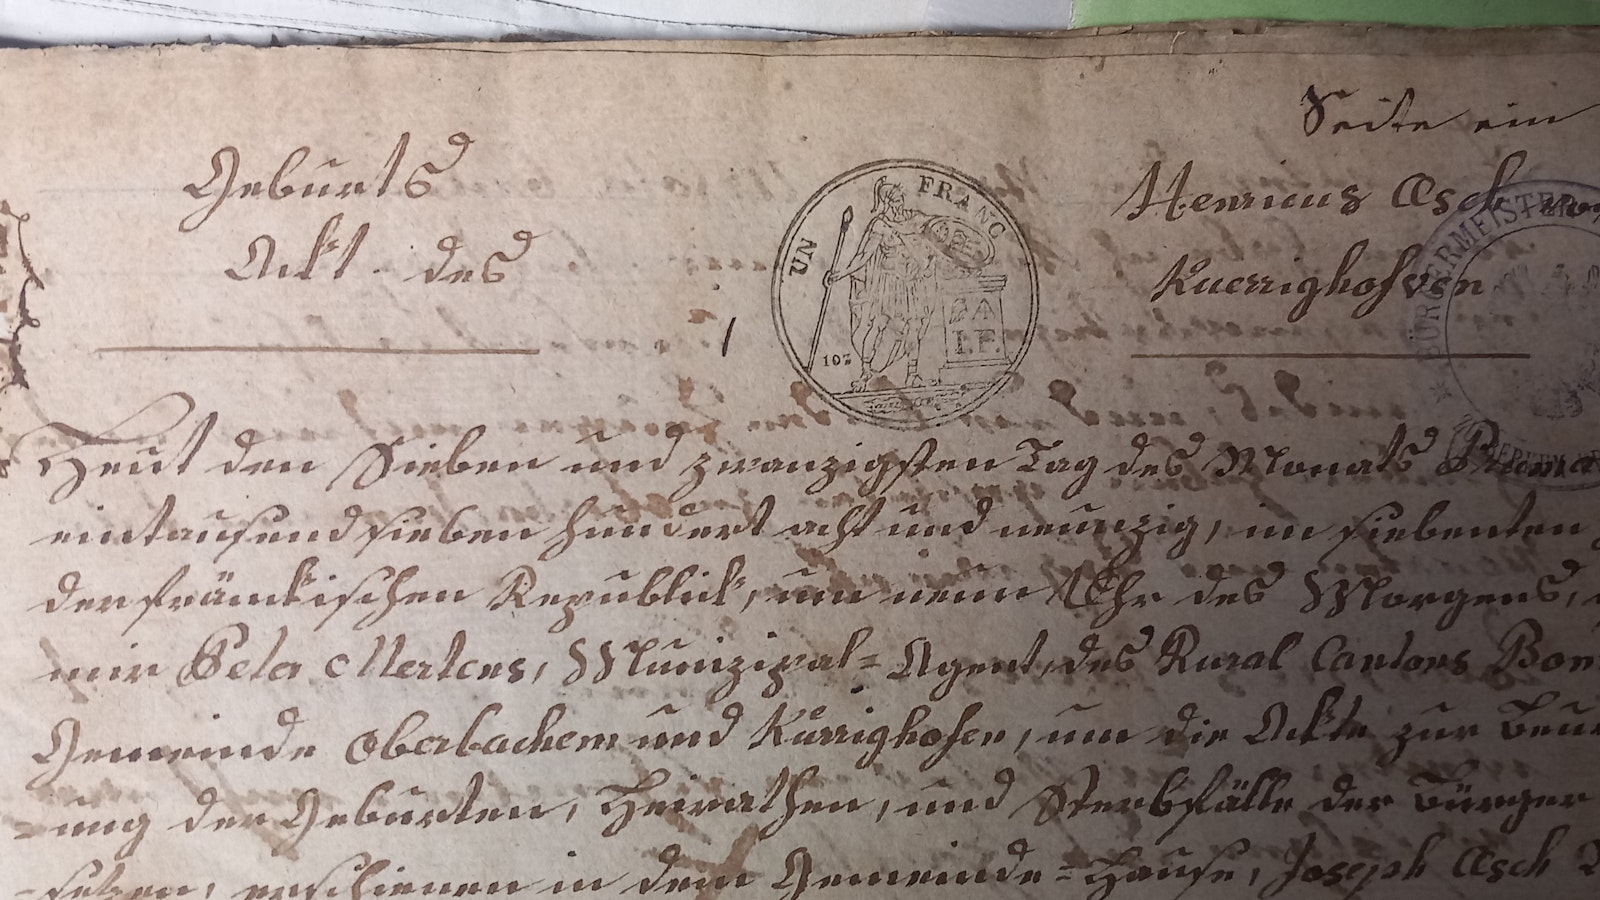 Seite ein
Geburts
Ackt des
Henricus Oesch
Kuerrighofen
UN FRANC
102
I.F.
BÜRGERMEISTER
Heut den Sieben und zwanzigsten Tag des Monats
eintausend sieben hundert acht und neunzig, im siebenten
der fränkischen Republick, um neun Uhr des Morgens,
mir Peter Mertens, Munizipal=Agent, des Rural Cantons Bon
Gemeinde Oberbachem und Kürrighofen, um die Ackte zur Beur
=ung der Geburten, Heirathen, und Sterbfälle der Bürger
=setzen, erschienen in dem Gemeinde=Hause, Joseph Oesch